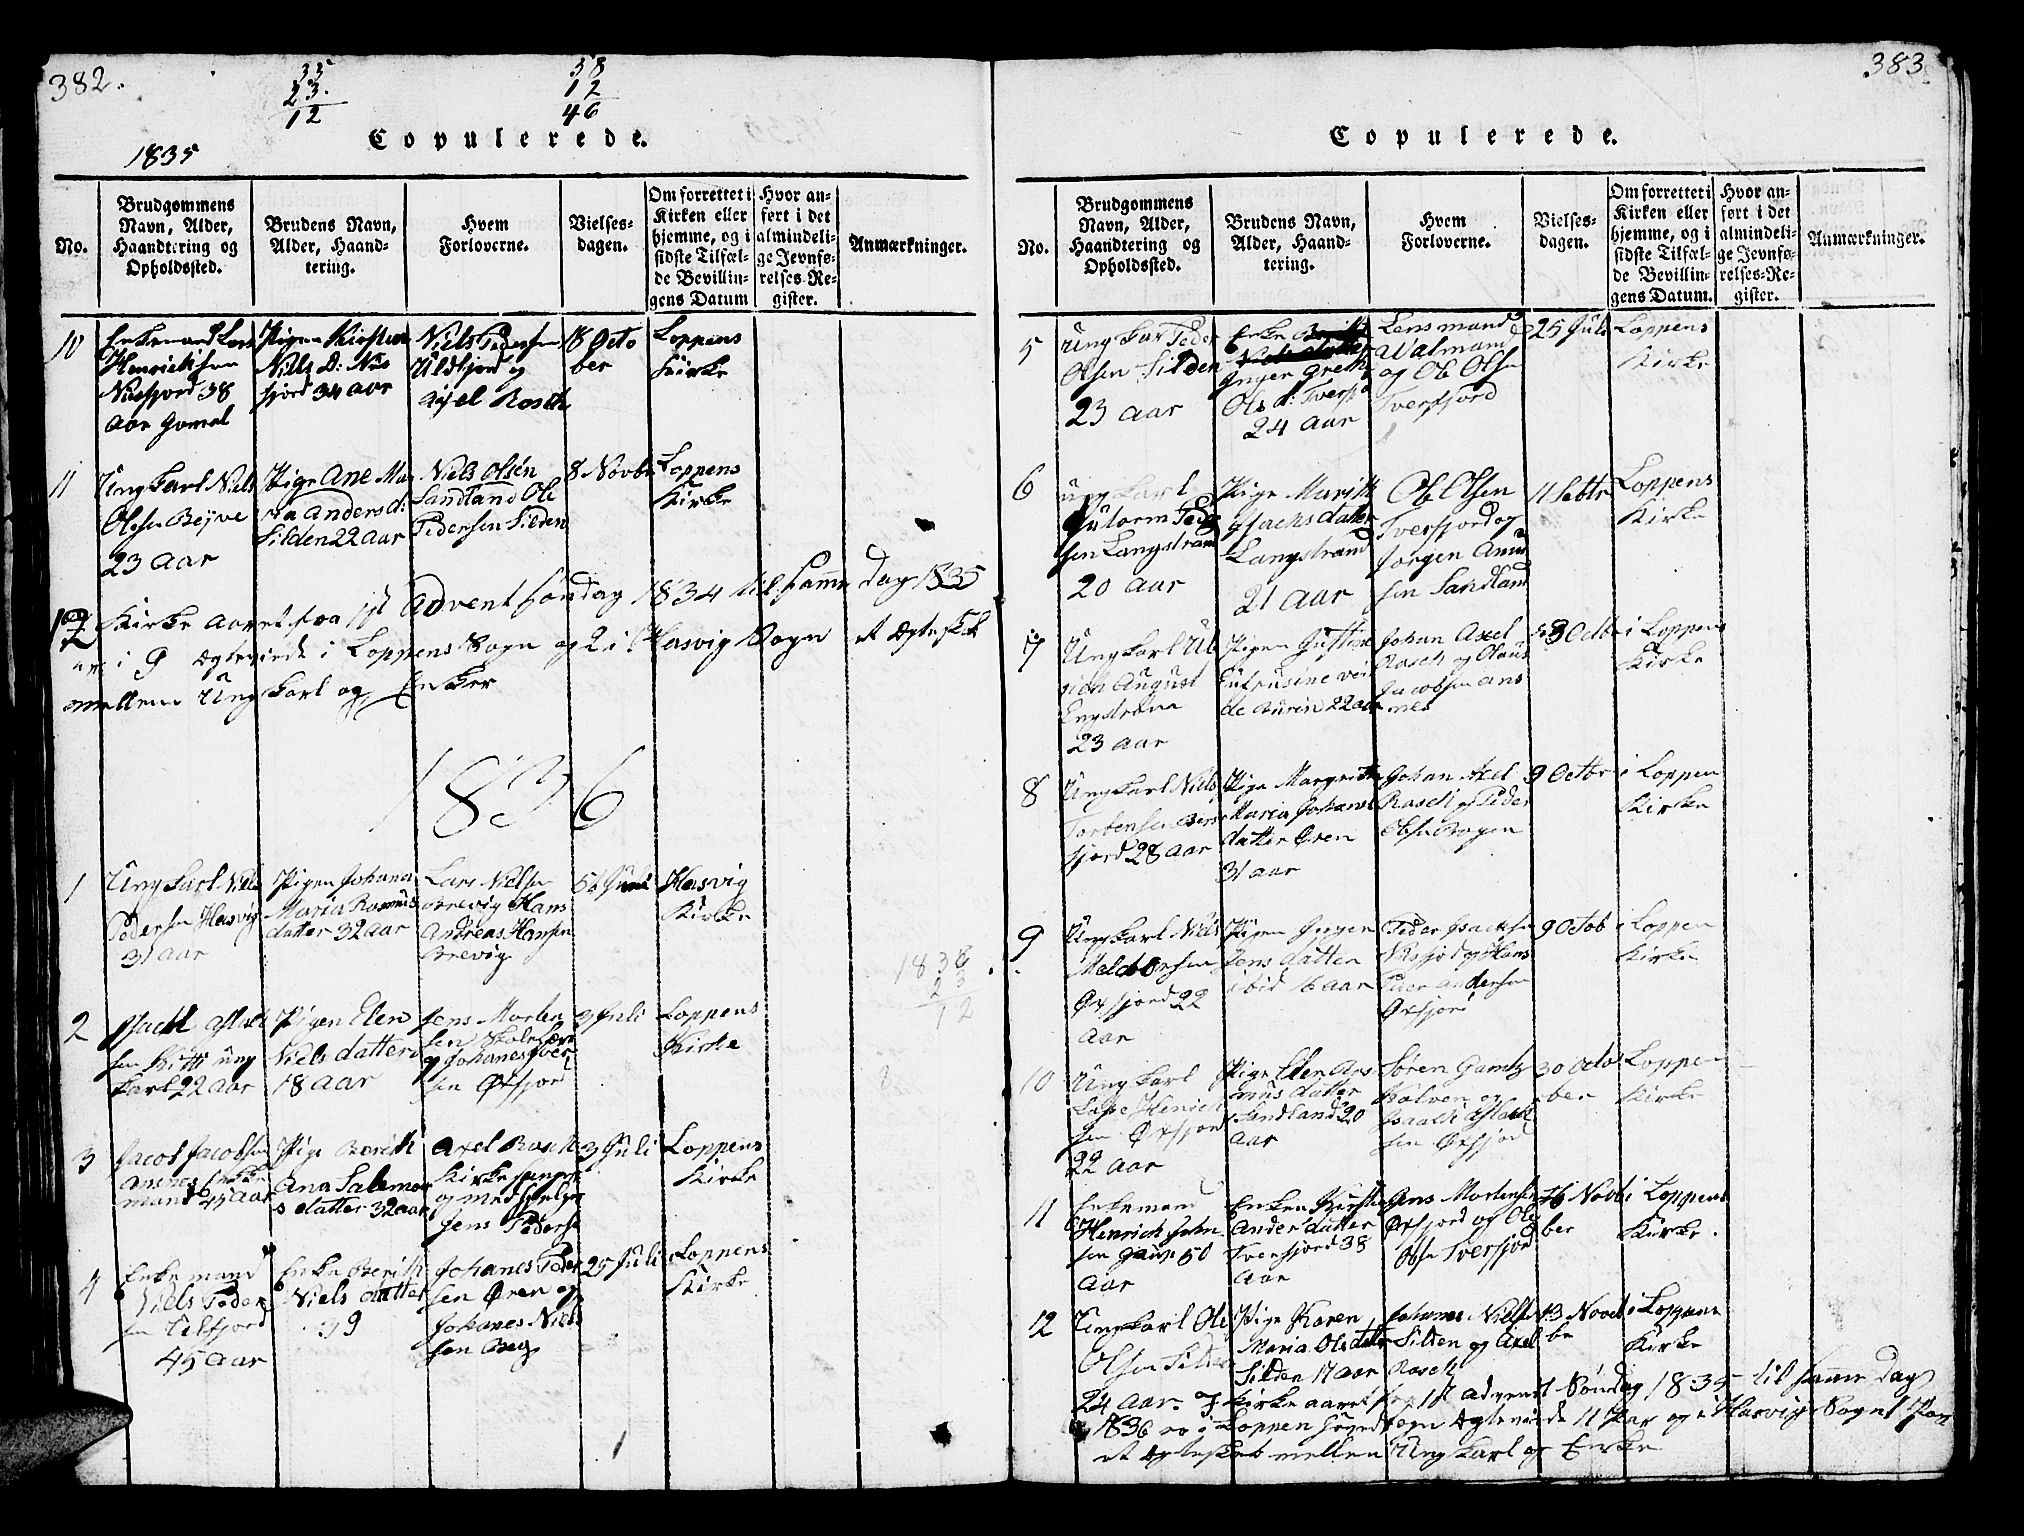 382.
35
23.
12
58
12
46
Copulerede.
1835
No.
Brudgommens Navn, Alder, Haandtering og Opholdssted.
Brudens Navn, Alder, Haandtering.
Hvem Forloverne.
Vielsesdagen.
Om forrettet i Kirken eller hjemme, og i sidste Tilfælde Bevillingens Datum
Hvor anført i det almindelige Jevnførelses-Register.
Anmærkninger.
10
Enkemand Lars
Henrichsen
38
Aar
Pigen Kirsten
Niels D:
fjord 34 aar
Niels Pedersen
Uldfjord og
Axel Rosch
18 Octo
ber
Loppens
Kirke
11
Ungkarl Niels
Olesen
23 aar
Pige Ane Ma
ria Anders d:
Silden 22 aar
Niels Olsén
Sandland Ole
Pedersen Silden
8 Novbr
Loppens
Kirke
12
Kirke aaret fra 1st Advent søndag 1834 til samme Dag 1835
er i 9 Ægteviede i Loppens Sogn og 2 i Hasvig Sogn et Ægteskab
mellem Ungkarl og Enker
1836
1
Ungkarl Niels
Pedersen Hasvig
31 aar
Pigen Johana
Maria Rasmus
datter 32 aar
Lars Nielsen
Brevig Hans
Andreas Hansen
Brevig
Juni
Hasvig
Kirke
2
Isach Aslach
sen ung
karl 22 aar
Pigen Elen
Niels datter
18 aar
Jens Morten
sen
og Johanes Iver
sen Øxfjord
3 Juli
Loppens
Kirke
3
Jacob Jacobsen
Ansnes Enke
mand 45 aar
Pige Berith
Ana Salamon
s datter 32 aar
Axel Rosch
Kirkesanger
og medhjelper
Jens Pedersen
3 Juli
Loppens
Kirke
4
Enkemand
Niels Peder
sen
45 aar
Enke Berith
Niels datter
Johanes Peder
sen Øren og
Johanes Niels
sen
25 Juli
Loppens
Kirke
183
23
12
383
Copulerede.
No.
Brudgommens Navn, Alder, Haandtering og Opholdssted.
Brudens Navn, Alder, Haandtering.
Hvem Forloverne.
Vielsesdagen.
Om forrettet i Kirken eller hjemme, og i sidste Tilfælde Bevillingens Datum.
Hvor anført i det almindelige Jevnførelses-Register.
Anmærkninger.
5
Ungkar Peder
Olsen Silden
23 aar
Enke
Inger Grethe
Ols d:
24 aar
Lensmand
Walmand
og Ole Olsen
Tverfjord
25 Juli
Loppens
Kirke
6
ungkarl
Gutorm Peder
sen Langstrand
20 aar
Pige Marith
Isachs datter
Langstrand
21 aar
Ole Olsen
Tverfjord og
Jørgen
sen Sandland
11 Sebtr
Loppens
Kirke
7
Ungkarl Ul
August
Engstrøm
23 aar
Pigen
22 aar
Johan Axel
Rosch og Olaus
Jacobsen Ans
nes
Octbr
i Loppens
Kirke
8
Ungkarl Niels
Torbensen
fjord 28 aar
Pige Margrethe
Maria Johans
datter Øren
31 aar
Johan Axel
Rosch og Peder
Olsen
9 Octbr
i Loppen
Kirke
9
Ungkarl Niels
Øxfjord 22
aar
Pigen Inger
Jens datter
ibid 16 aar
Peder Isachsen
og Hans
Peder Andersen
Øxfjord
9 Octob
i Loppen
Kirke
10
Ungkarl
Henrich
sen Øxfjord
22 aar
Pige Elen
mus datter
Sandland 20
aar
Søren
Kalven og
Aslach
sen Øxfjord
30 Octo
ber
Loppen
Kirke
11
Enkemand
Henrich John
sen 50
aar
Enken Kirsten
Anders datter
Tverfjord 38
aar
Jens Mortensen
Øxfjord og Ole
Olsen Tverfjord
Nov
ber
i Loppens
Kirke.
12
Ungkarl Ole
Olsen Silden
24 aar.
Pige Karen
Maria Olsdatter
Silden 17 aar
Johanes Nielsen
Silden og Axel
Rosch
13 Novem
be
i Loppens
Kirke
I Kirke aaret fra 1st Advent Søndag 1835 til samme Dag
1836 er i Loppen Sogn Ægteviede 11 Par og i Hasvigs Sogn 1 Par
et Ægteskab mellem Ungkarl og Enke